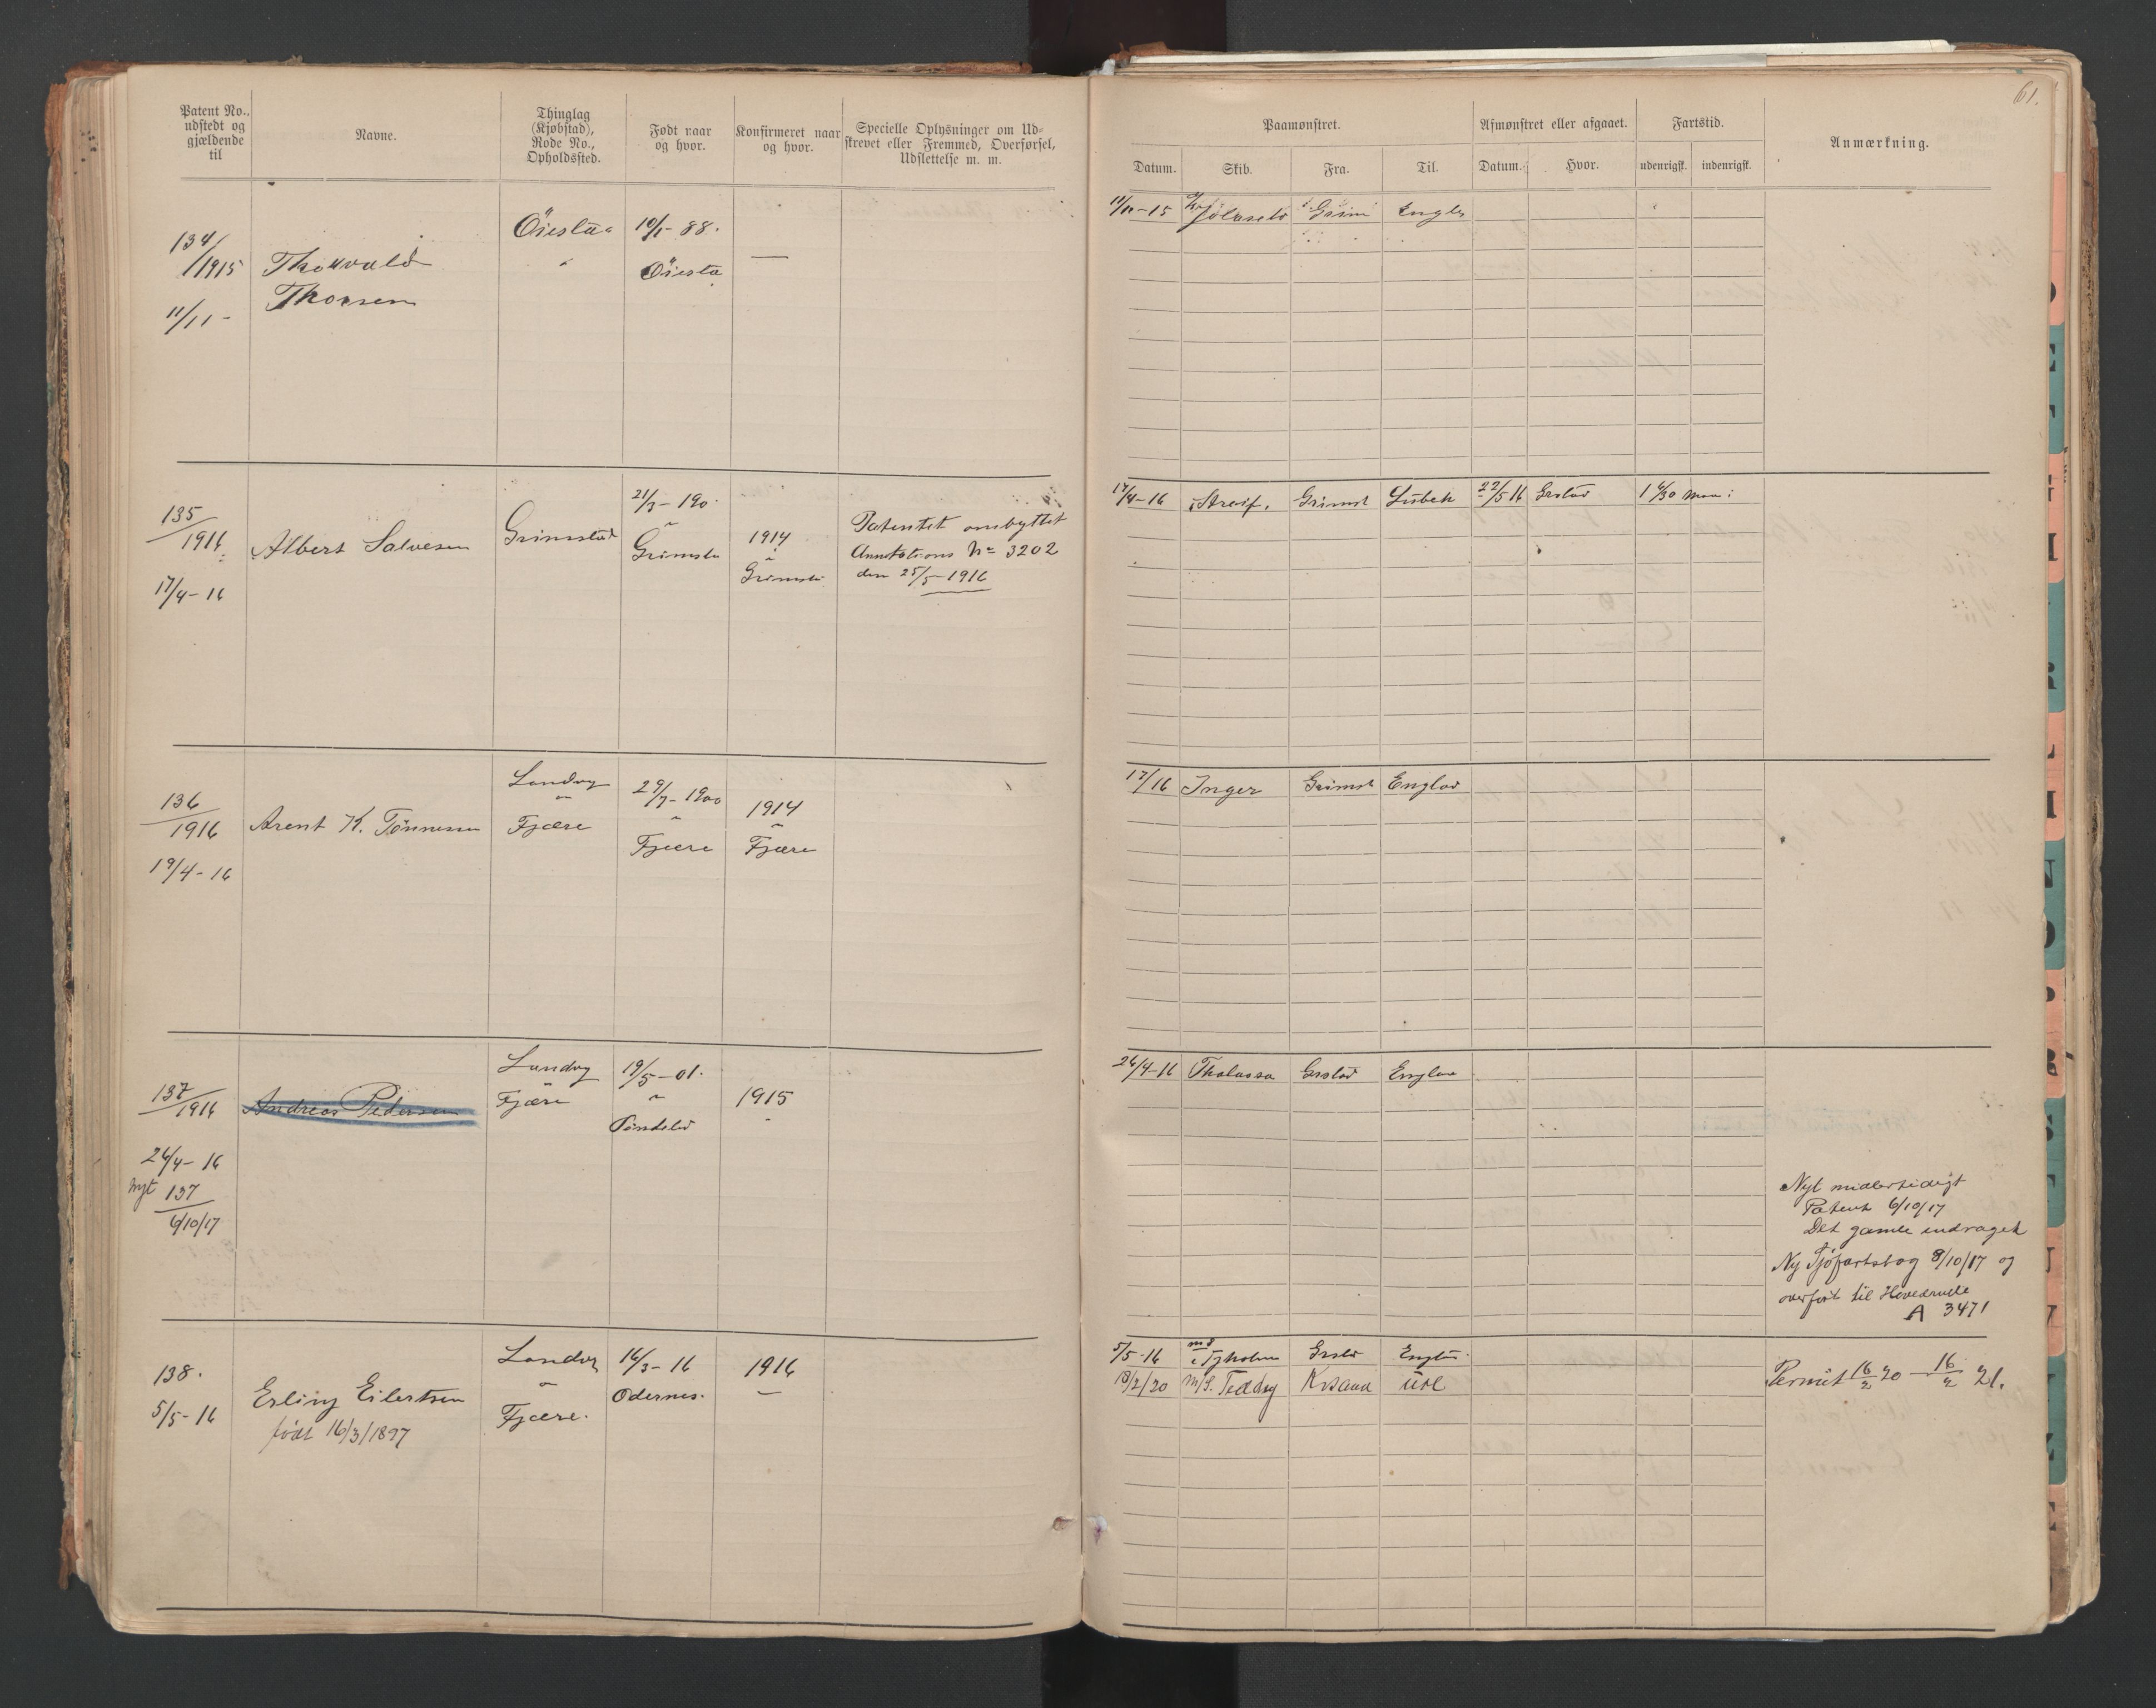 61.
Patent No.
udstedt og
gjældende
til
Navne.
Thinglag
(Kjøbstad),
Rode No.,
Opholdssted.
Født naar
og hvor.
Konfirmeret naar
og hvor.
Specielle Oplysninger om Ud-
skrevet eller Fremmed, Overførsel,
Udslettelse m. m.
Paamønstret.
Datum.
Skib.
Fra.
Til.
Afmønstret eller afgaaet.
Datum.
Hvor.
Fartstid.
udenrigsk.
indenrigsk.
Anmærkning.
134/1915
11/11 -
Thorvald
Thorsen
Öiestad
10/1- 88.
Öiesta
11/11-15
Grim
Engl
135/1916
17/4- 16
Albert Salvesen
Grimstad
21/3- 190
Grimsta
1914
Grimsta
Patentet ombyttet
Annotations No 3202
den 25/5-1916
17/4-16
Grimst
Lübek
22/5 16
Grstad
1 4/30 Mån:
136/1916
19/4- 16
Arent K. Tønnessen
Landvig
Fjære
29/7- 1900
Fjære
1914
Fjære
17/16
Inger
Grimst
England
137/1916
26/4- 16
nyt 137
6/10/17
Andreas Pedersen
Landvig
Fjære
19/5-01.
1915
26/4-16
Thalassa
Grstad
Englan
Nyt midlertidigt
Patent 6/10/17
Det gamle inddraget
Ny Sjøfartsbog 8/10/17 og
overført til Hovedrulle
A 3471
138.
5/5- 16
Erling Eilertsen
født 16/3/1897
Landvig
Fjære.
16/3- 16
Odernes.
1916
5/5-16
Grstd
Englan
18/2/20
M/S. Teddy
Krsand
Permit 16/2 20 — 16/2 21.